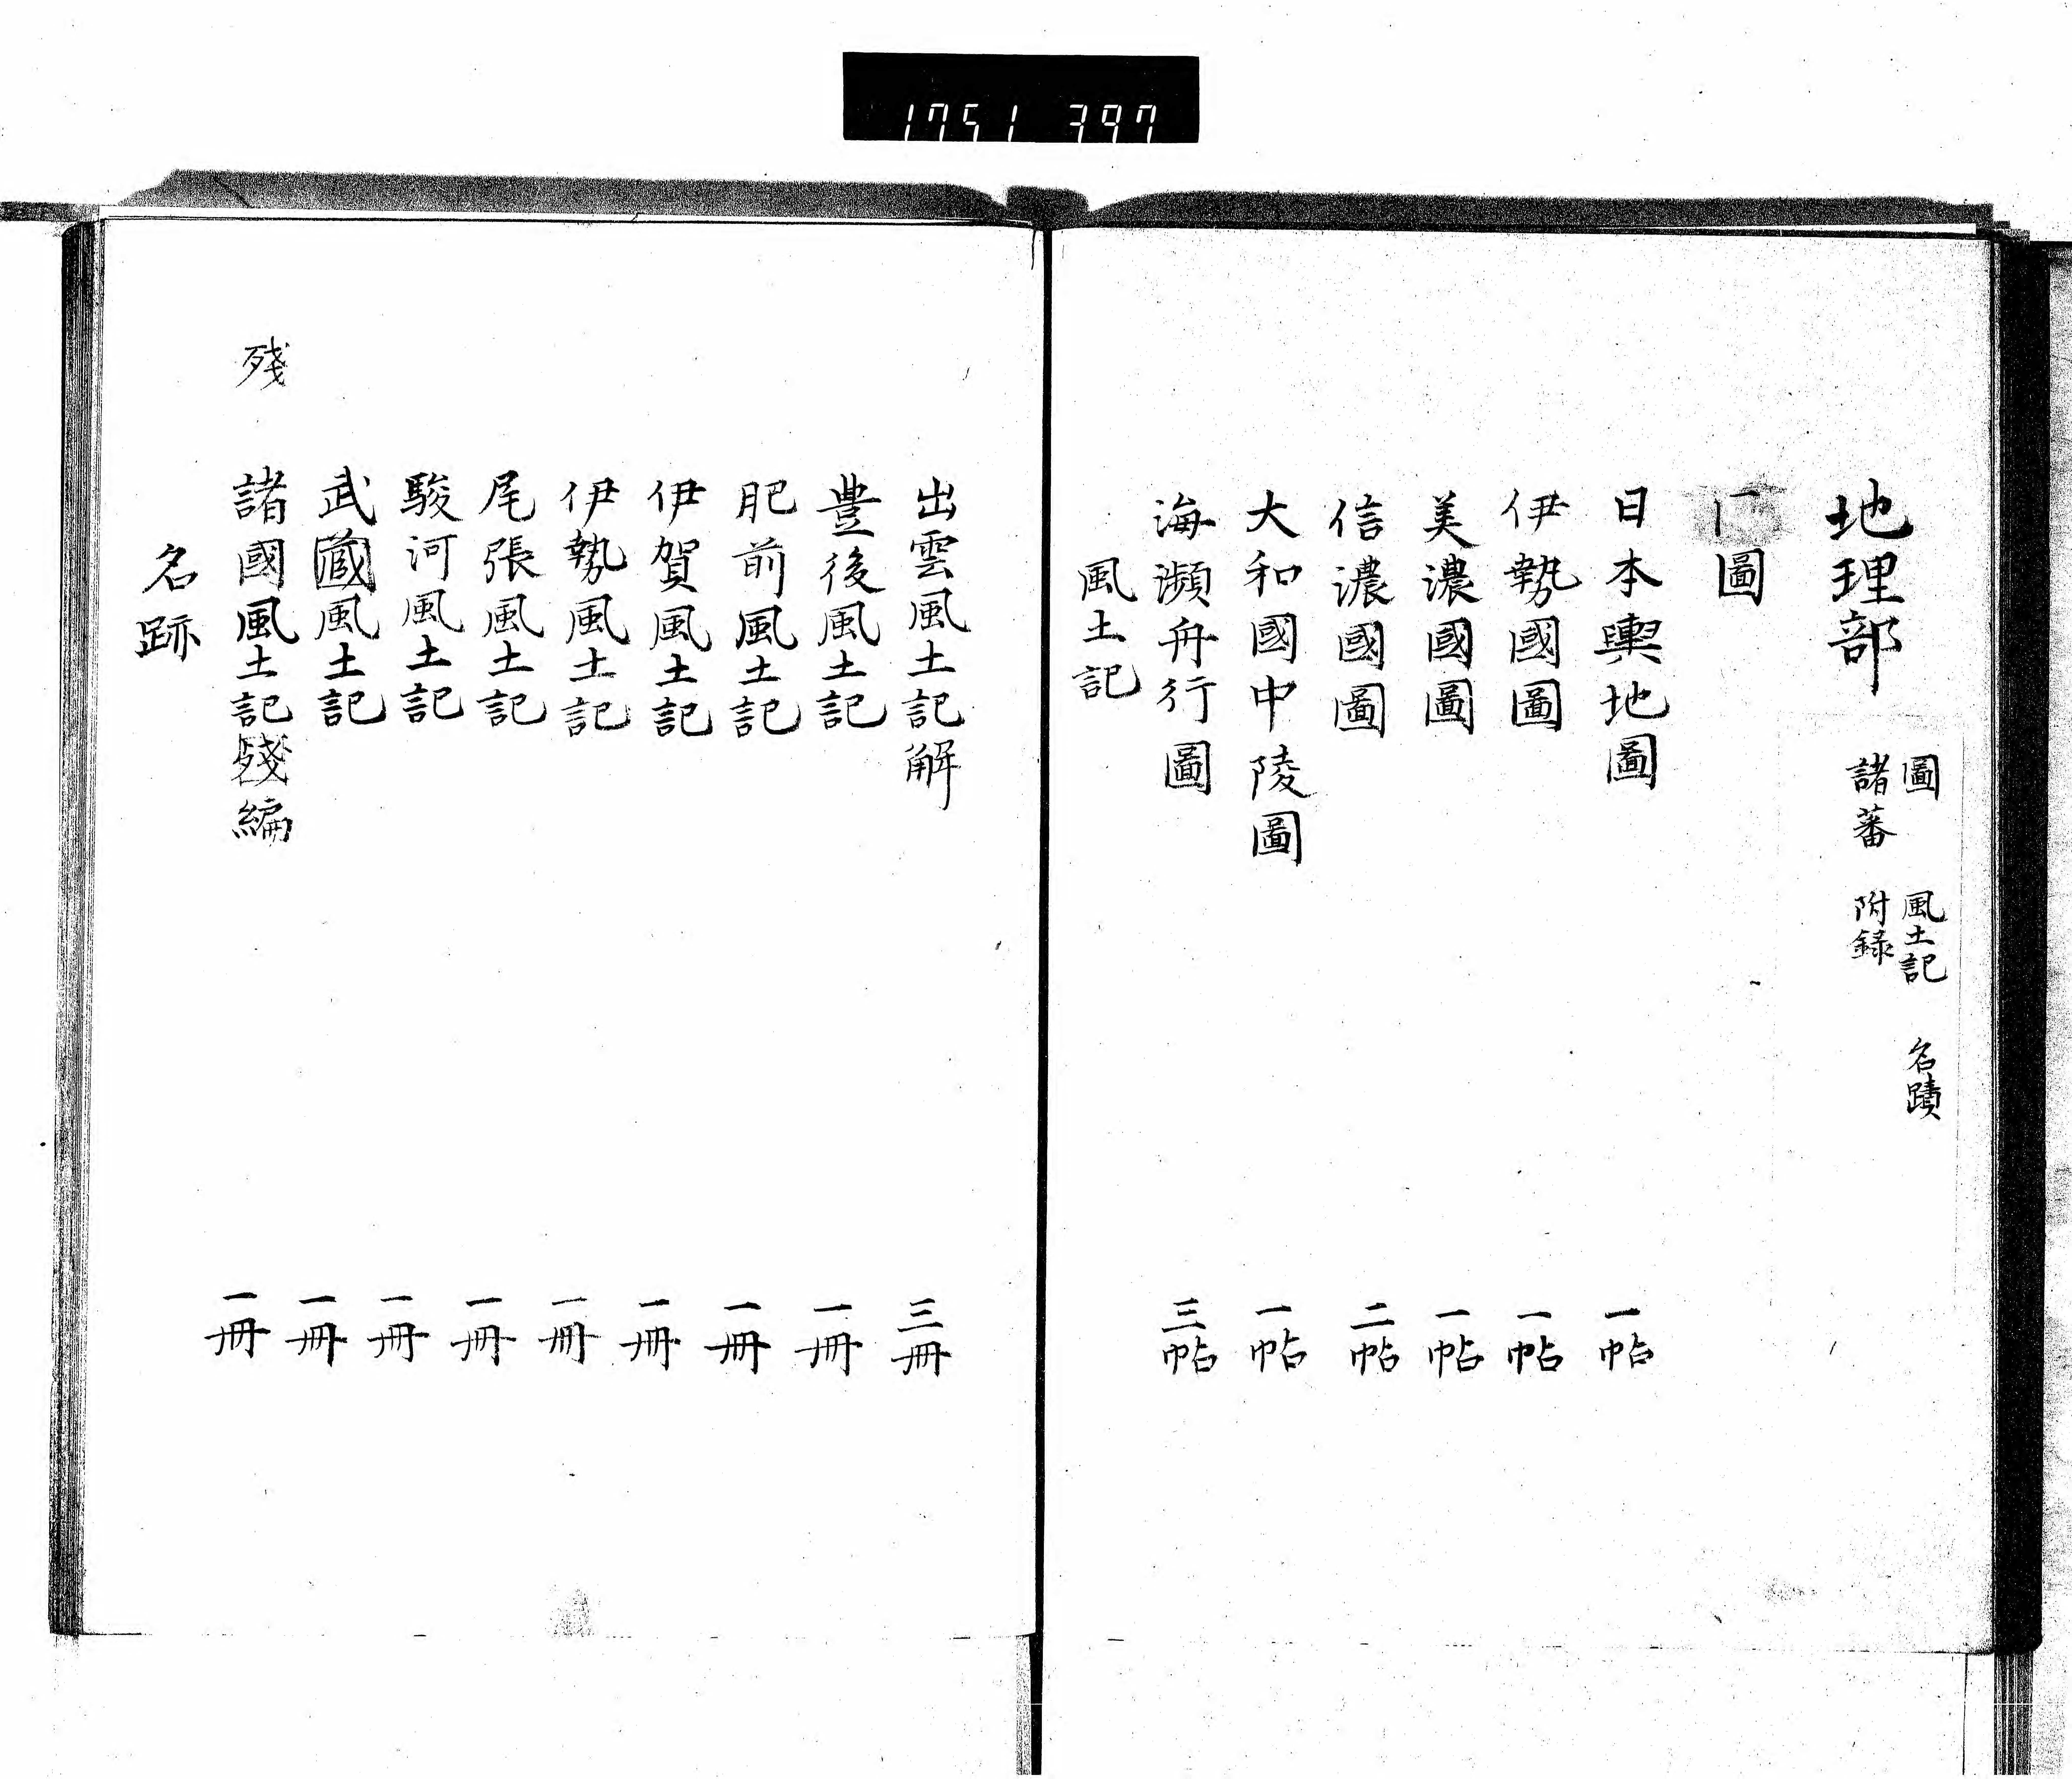 1751 397
地理部
圖 風土記 名蹟
諸蕃 附録
圖
日本輿地圖 一帖
伊勢國圖 一帖
美濃國圖 一帖
信濃國圖 二帖
大和國中陵圖 一帖
海瀕舟行圖 三帖
風土記
出雲風土記解 三冊
豊後風土記 一冊
肥前風土記 一冊
伊賀風土記 一冊
伊勢風土記 一冊
尾張風土記 一冊
駿河風土記 一冊
武蔵風土記 一冊
殘
諸國風土記殘編 一冊
名跡